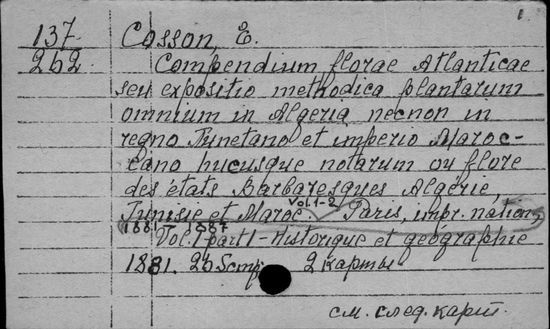 1.
137 Cosson, E.
262 Compendium florae Atlanticae
seu expositio methodica plantarum
omnium in Algeria necnon in
regno Tunetano et imperio Maroc-
cano hucusque notarum ou flore
des états Barbaresques Algérie,
Vol. 1-2
Tunisie et Maroc. Paris, impr. nation,
1881 887
Vol. I part I - Historique et géographie
1881. 265 стр. 2 карты
см. след. карт.